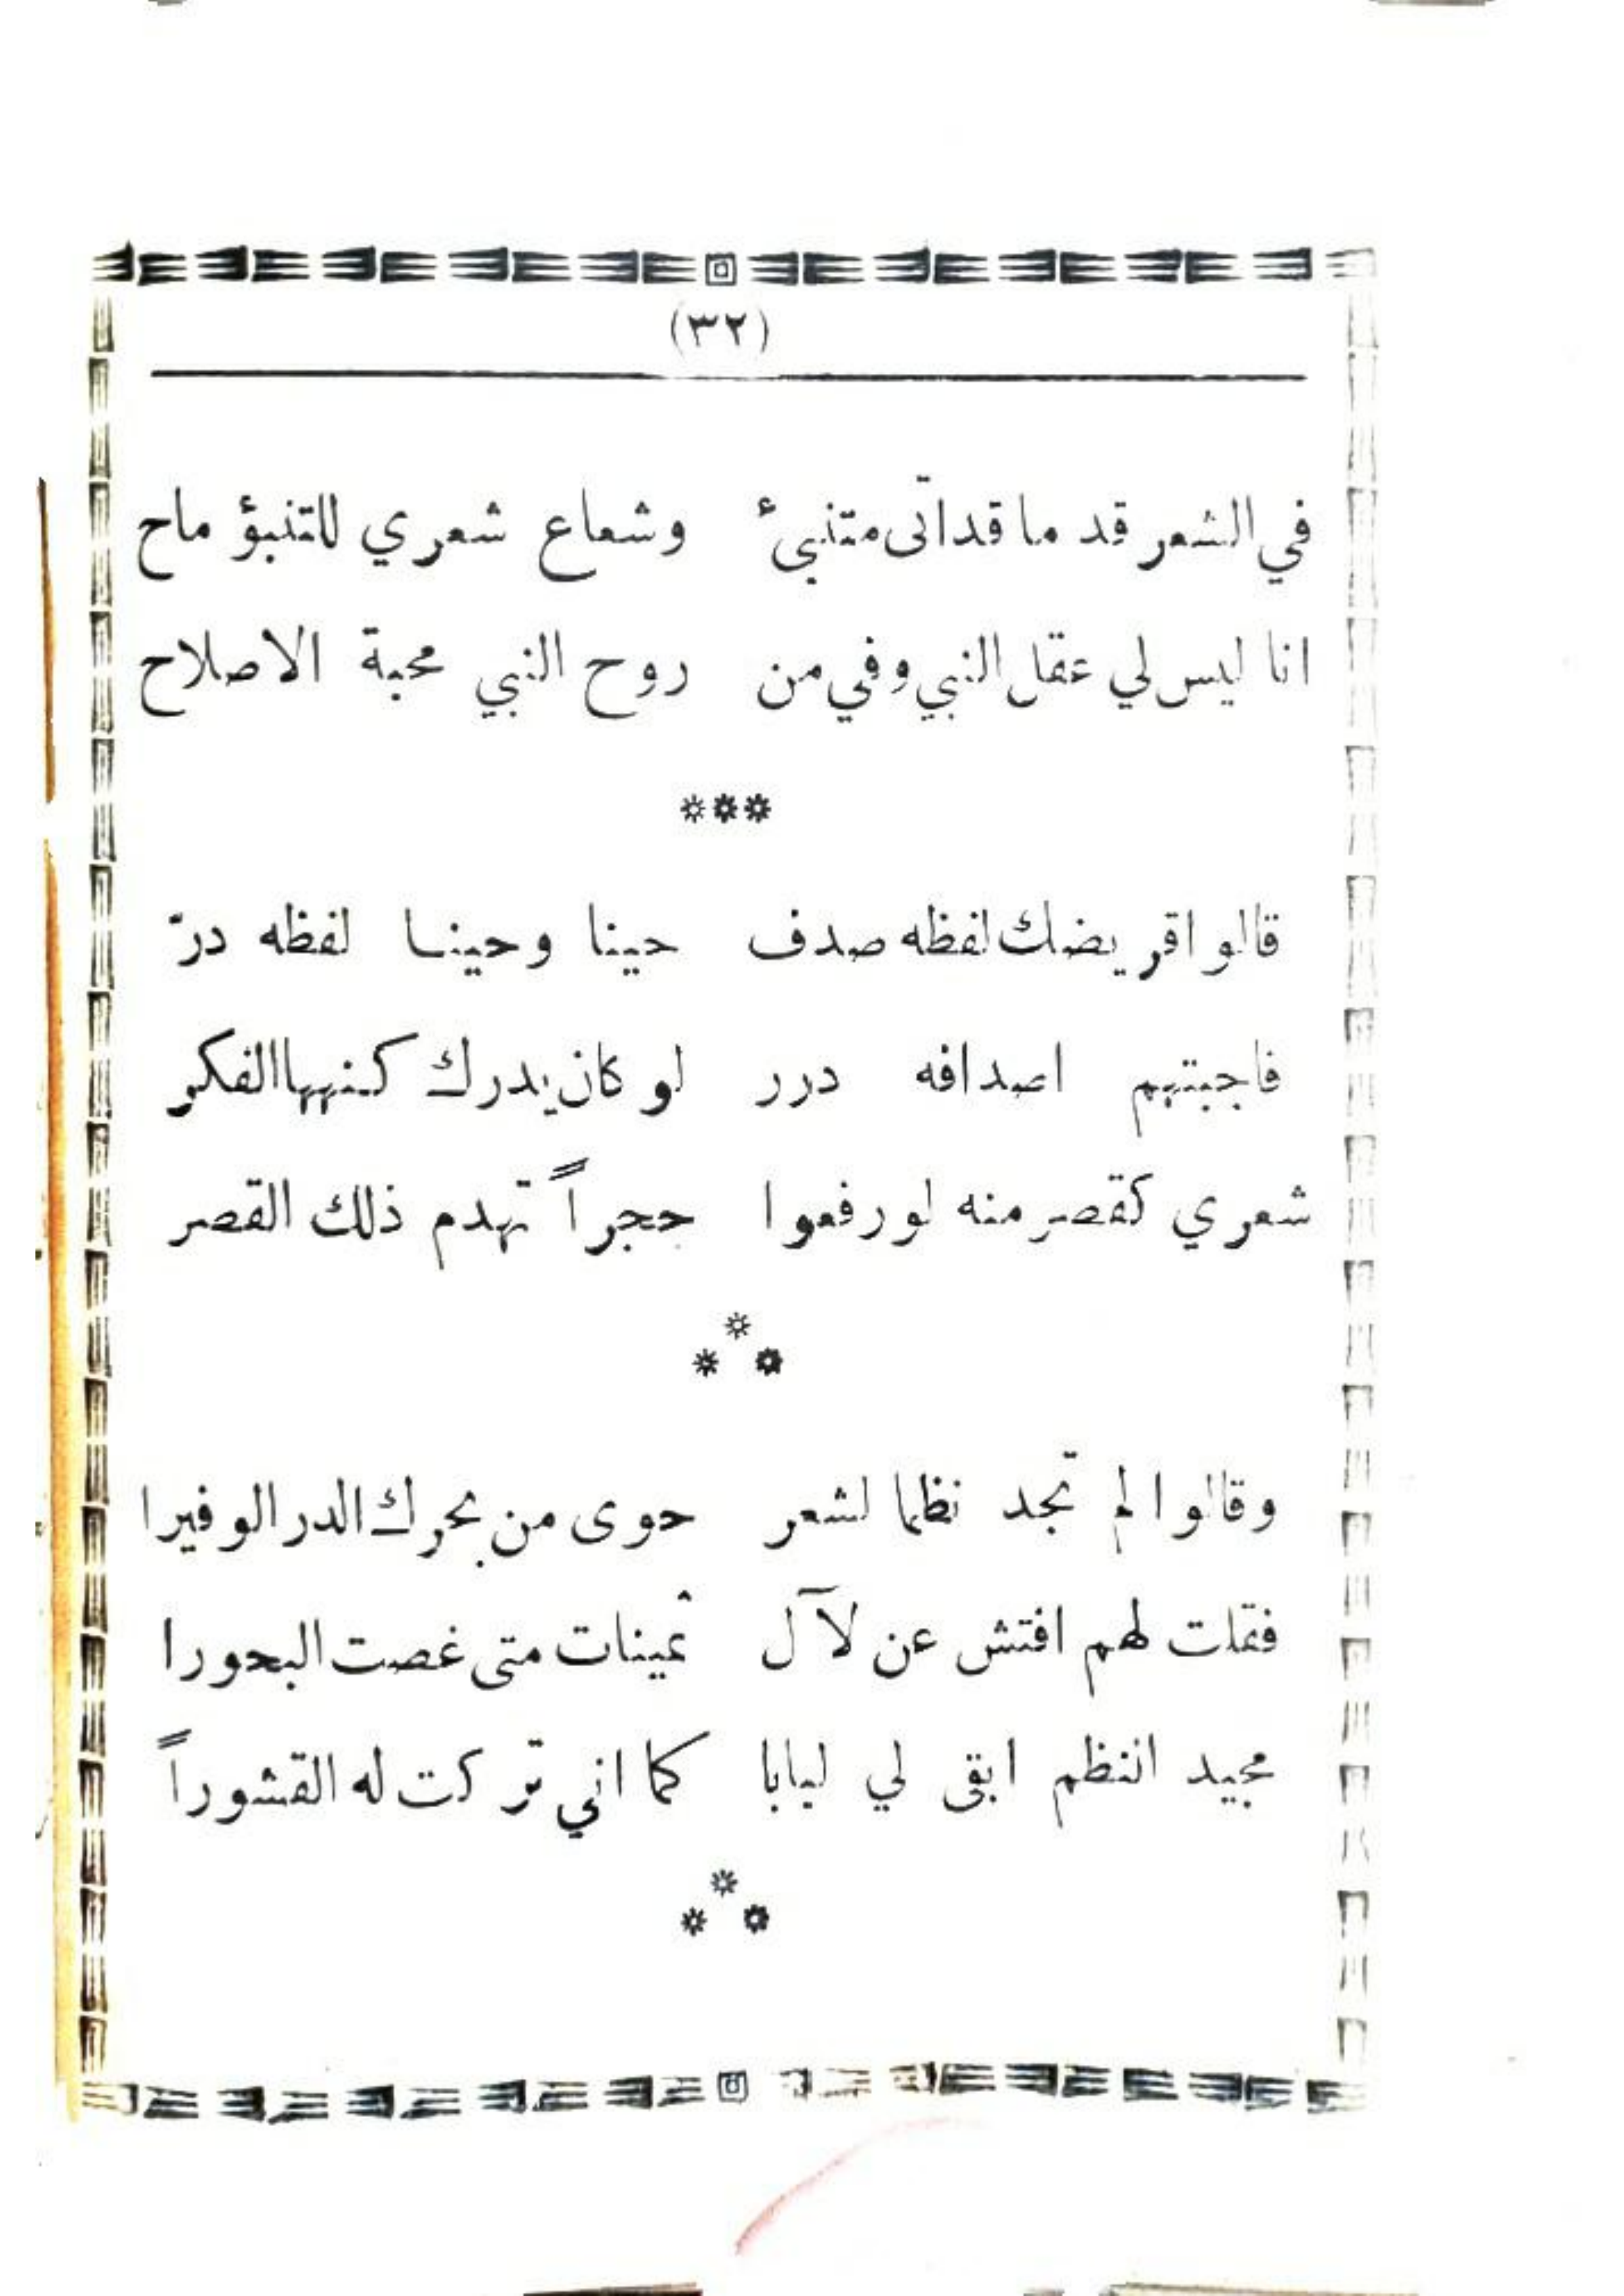 (٣٢)
في الشعر قد ما قد اتّى متنبىء وشعاع شعري للتنبؤ ماح
انا ليس لي عقل النبي وفي من روح النبي محبة الاصلاح
***
قالوا قريضك لفظه صدف حينا وحينا لفظه درّ
فاجبتهم اصدافه درر لو كان يدرك كنهها الفكر
شعري كقصر منه لو رفعوا حجراً تهدم ذلك القصر
***
وقالوا لم تجد نظما لشعر حوى من بحرك الدر الوفيرا
فقلت لهم افتش عن لآل ثمينات متى غصت البحورا
مجيد النظم ابقى لي لبابا كما اني تركت له القشوراً
***